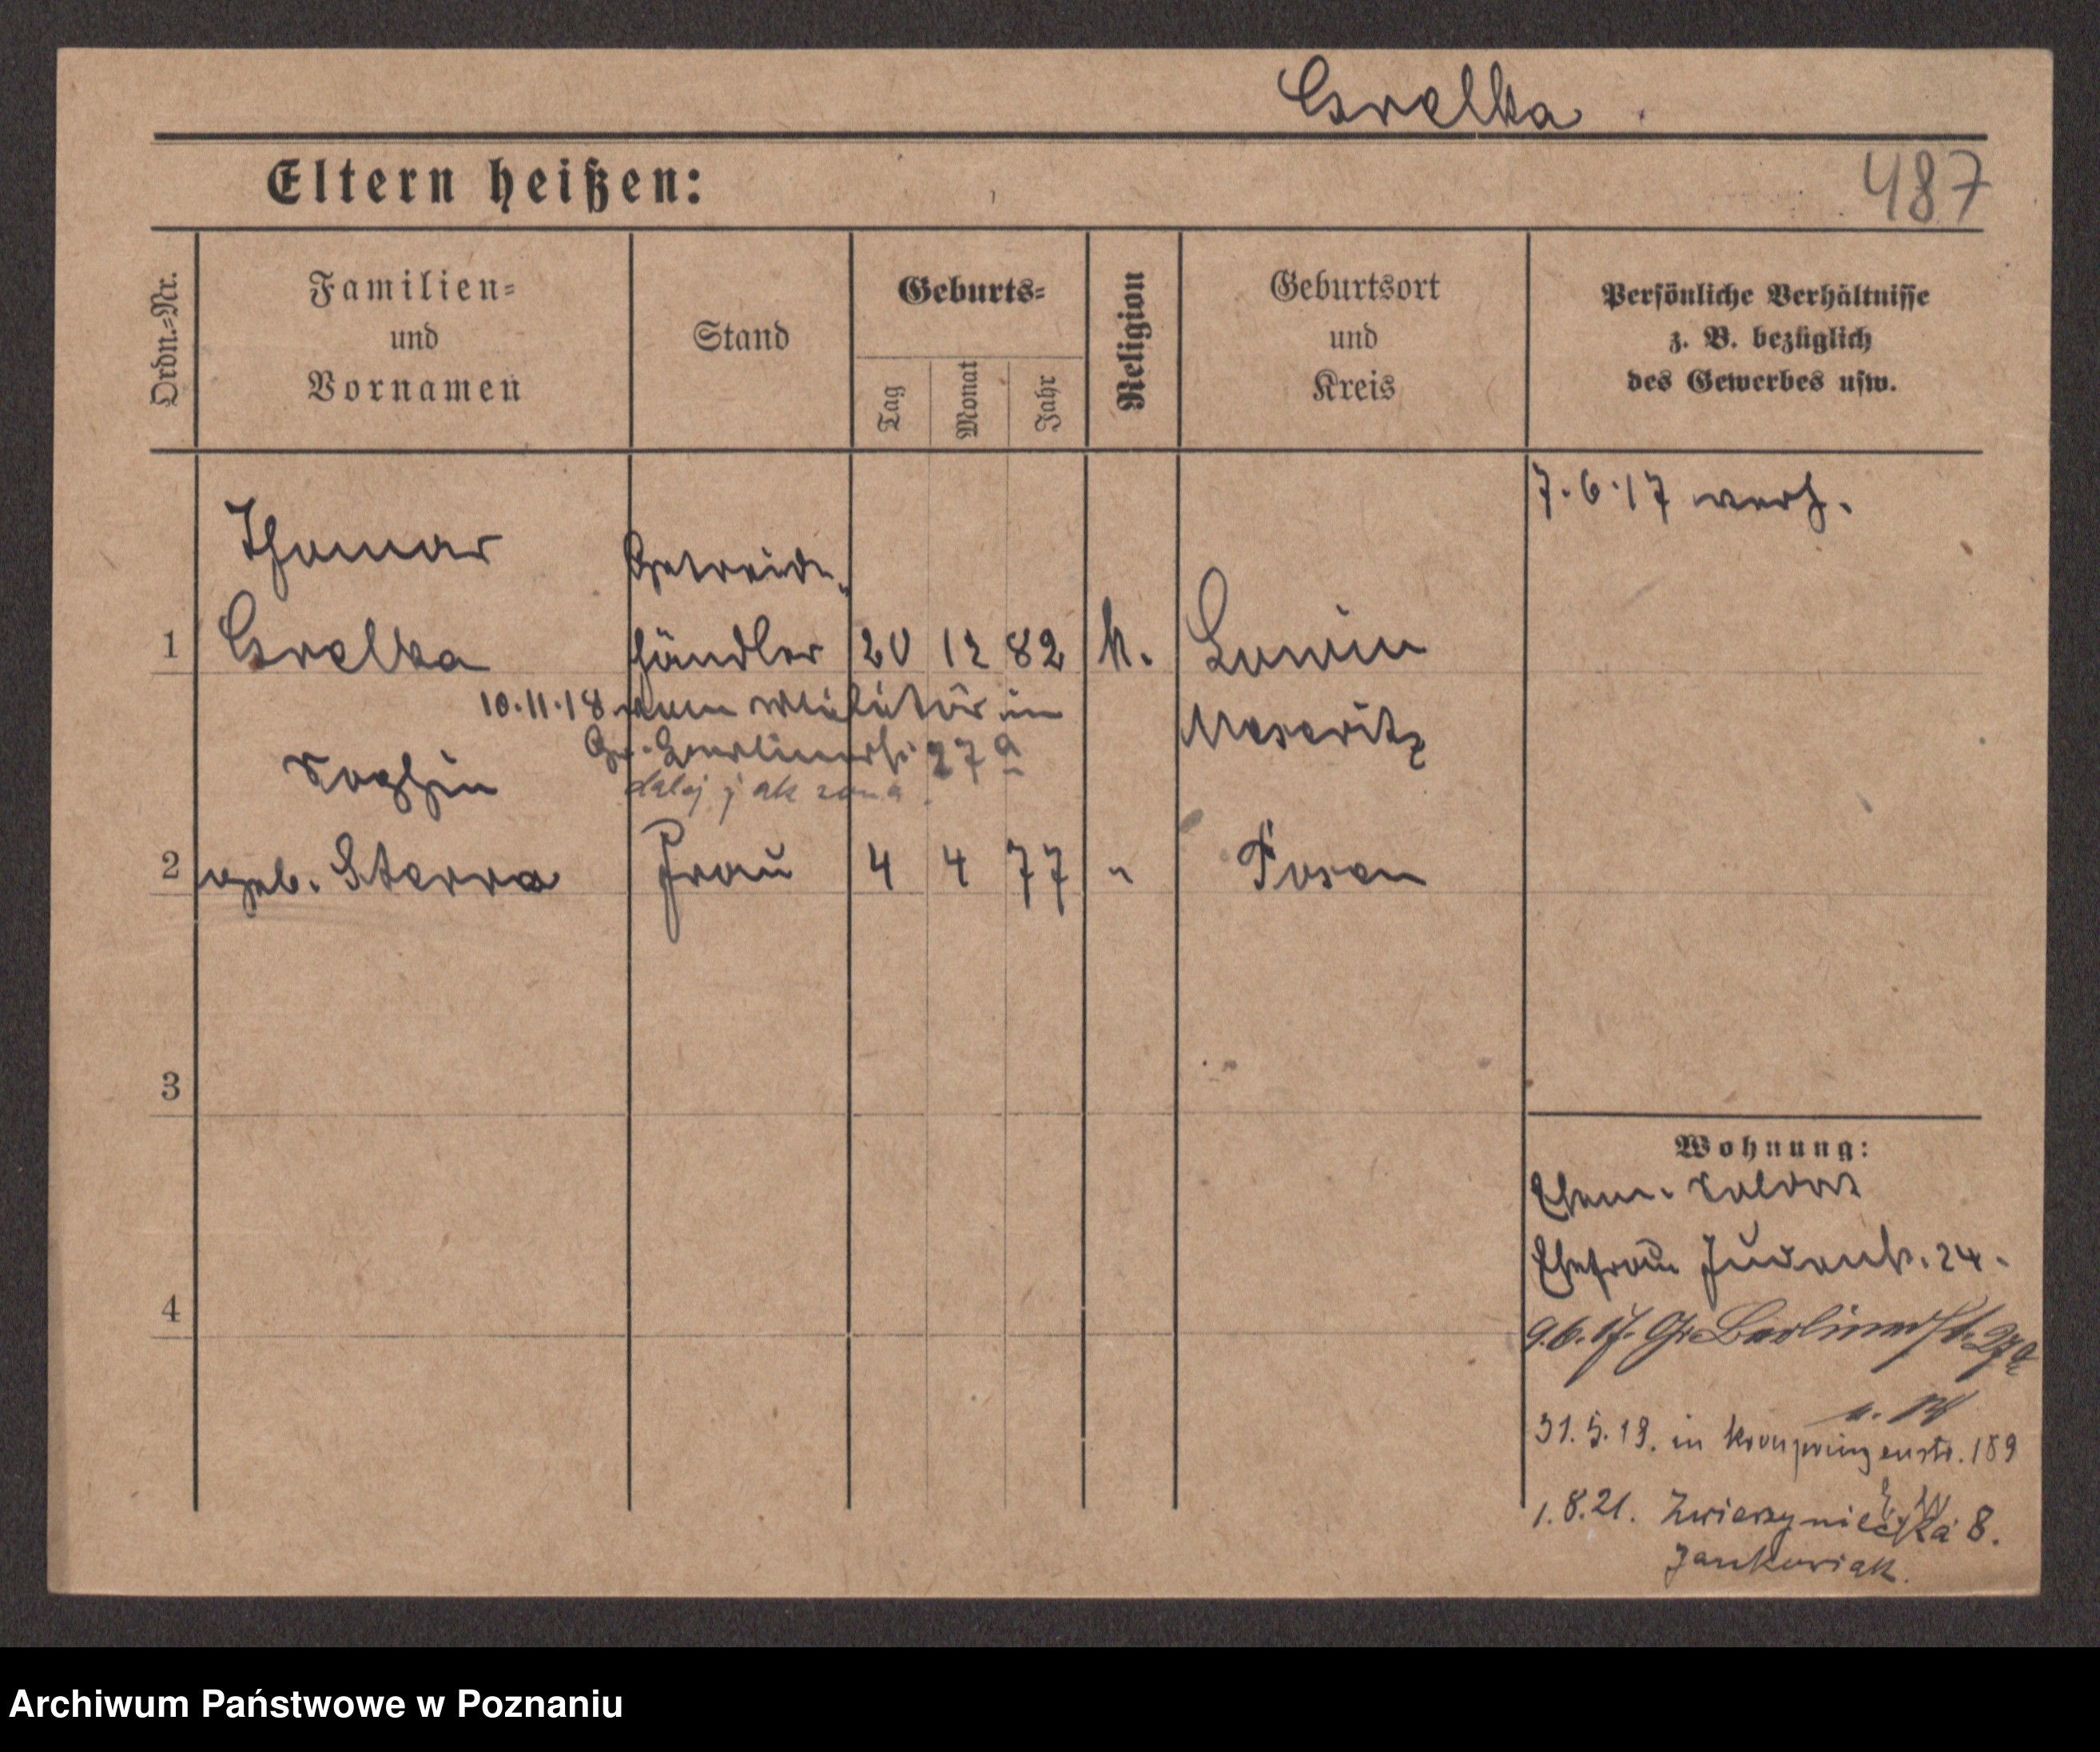 Grelka
Eltern heißen:
487
Ordn.=Nr.
Familien=
und
Vornamen
Stand
Geburts=
Tag
Monat
Jahr
Religion
Geburtsort
und
Kreis
Persönliche Verhältnisse
z. B. bezüglich
des Gewerbes usw.
7.6.17 verh.
Thomas
Getreide-
1 Grelka händler 20 12 82 k. Lowin
10.11.18 vom Militär in
Meseritz
Gr. Berlinerstr. 27a
Sophie
dalej jak żona.
2 geb. Sterra Frau 4 4 77 " Posen
3
4
Wohnung:
Ehem. Soldat
Ehefrau Judenstr. 24.
9.6.17. Gr. Berlinerstr. 27a
31.5.19. in Kronprinzenstr. 189
1.8.21. Zwierzyniecka 8.
Jankowiak.
Archiwum Państwowe w Poznaniu